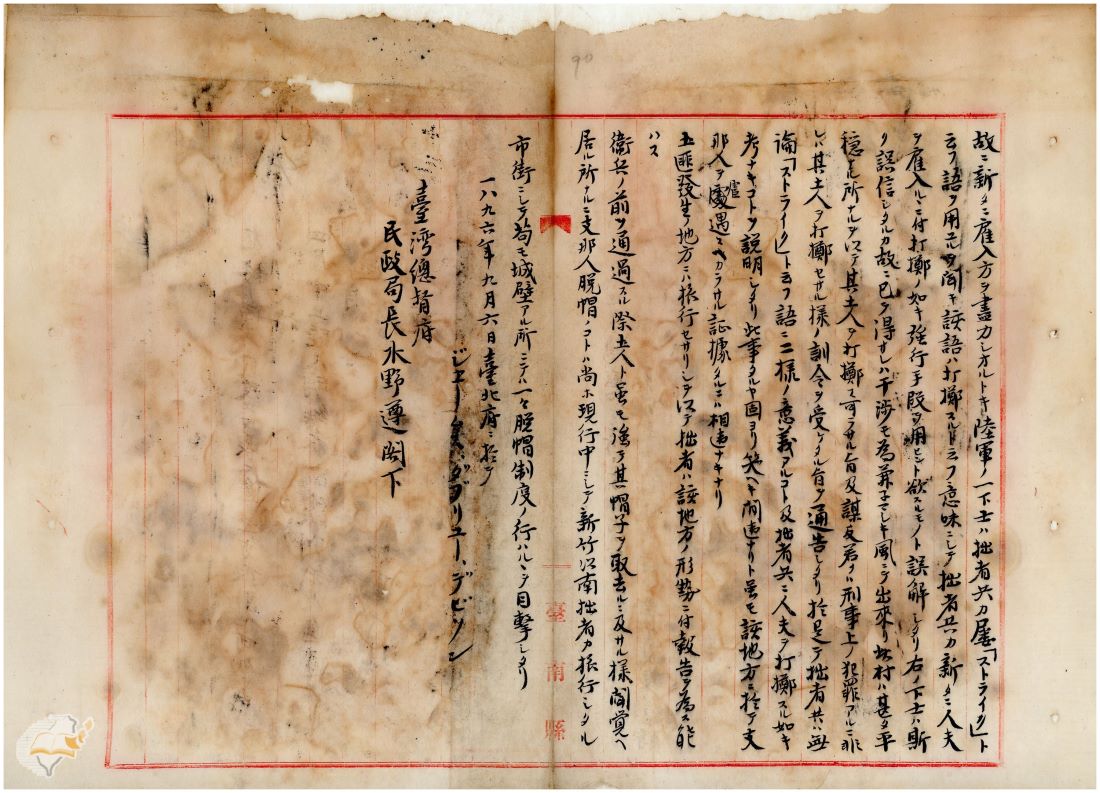 90
故ニ新タニ雇入方ヲ盡力シオルトキ陸軍ノ一下士ハ拙者共カ屡「ストライク」ト
云フ語ヲ用ユルヲ聞キ該語ハ打擲スルト云フ意味ニシテ拙者共カ新タニ人夫
ヲ雇入ルニ付打擲ノ如キ強行手段ヲ用ヒント欲スルモノト誤解シタリ右ノ下士ハ斯
ク誤信シタルカ故ニ已ヲ得ナレハ干渉モ為兼間シキ風ニテ出來リ此村ハ甚タ平
穏ナル所ナルヲ以テ其土人ヲ打擲ス可ラサル旨及謀反若クハ刑事上ノ犯罪アルニ非
レハ其土人ヲ打擲セサル様ノ訓令ヲ受ケタル旨ヲ通告シタリ於是テ拙者共ハ無
論「ストライク」ト云フ語ニ二様ノ意義アルコト及拙者共ニ人夫ヲ打擲スル如キ
考ナキコトヲ説明シタリ此事タルヤ固ヨリ笑ヘキ間違ナリト虽モ該地方ニ於テ支
那人ヲ虐遇スヘカラサル証據タルニハ相違ナキナリ
土匪發生ノ地方ニハ旅行セサリシヲ以テ拙者ハ該地方ノ形勢ニ付報告ヲ為ス能
ハス
衛兵ノ前ヲ通過スル際土人ト虽モ強テ其帽子ヲ取去ルニ及サル様聞覚ヘ
居ル所ナルニ支那人脱帽ノコトハ尚ホ現行中ニシテ新竹以南拙者カ旅行シタル
市街ニシテ苟モ城壁アル所ニテハ一々脱帽制度ノ行ハルヽヲ目撃シタリ
一八九六年九月六日臺北府ニ於テ
ジエー、ダブリユー、デビソン
臺湾總督府
民政局長水野遵閣下
臺南縣